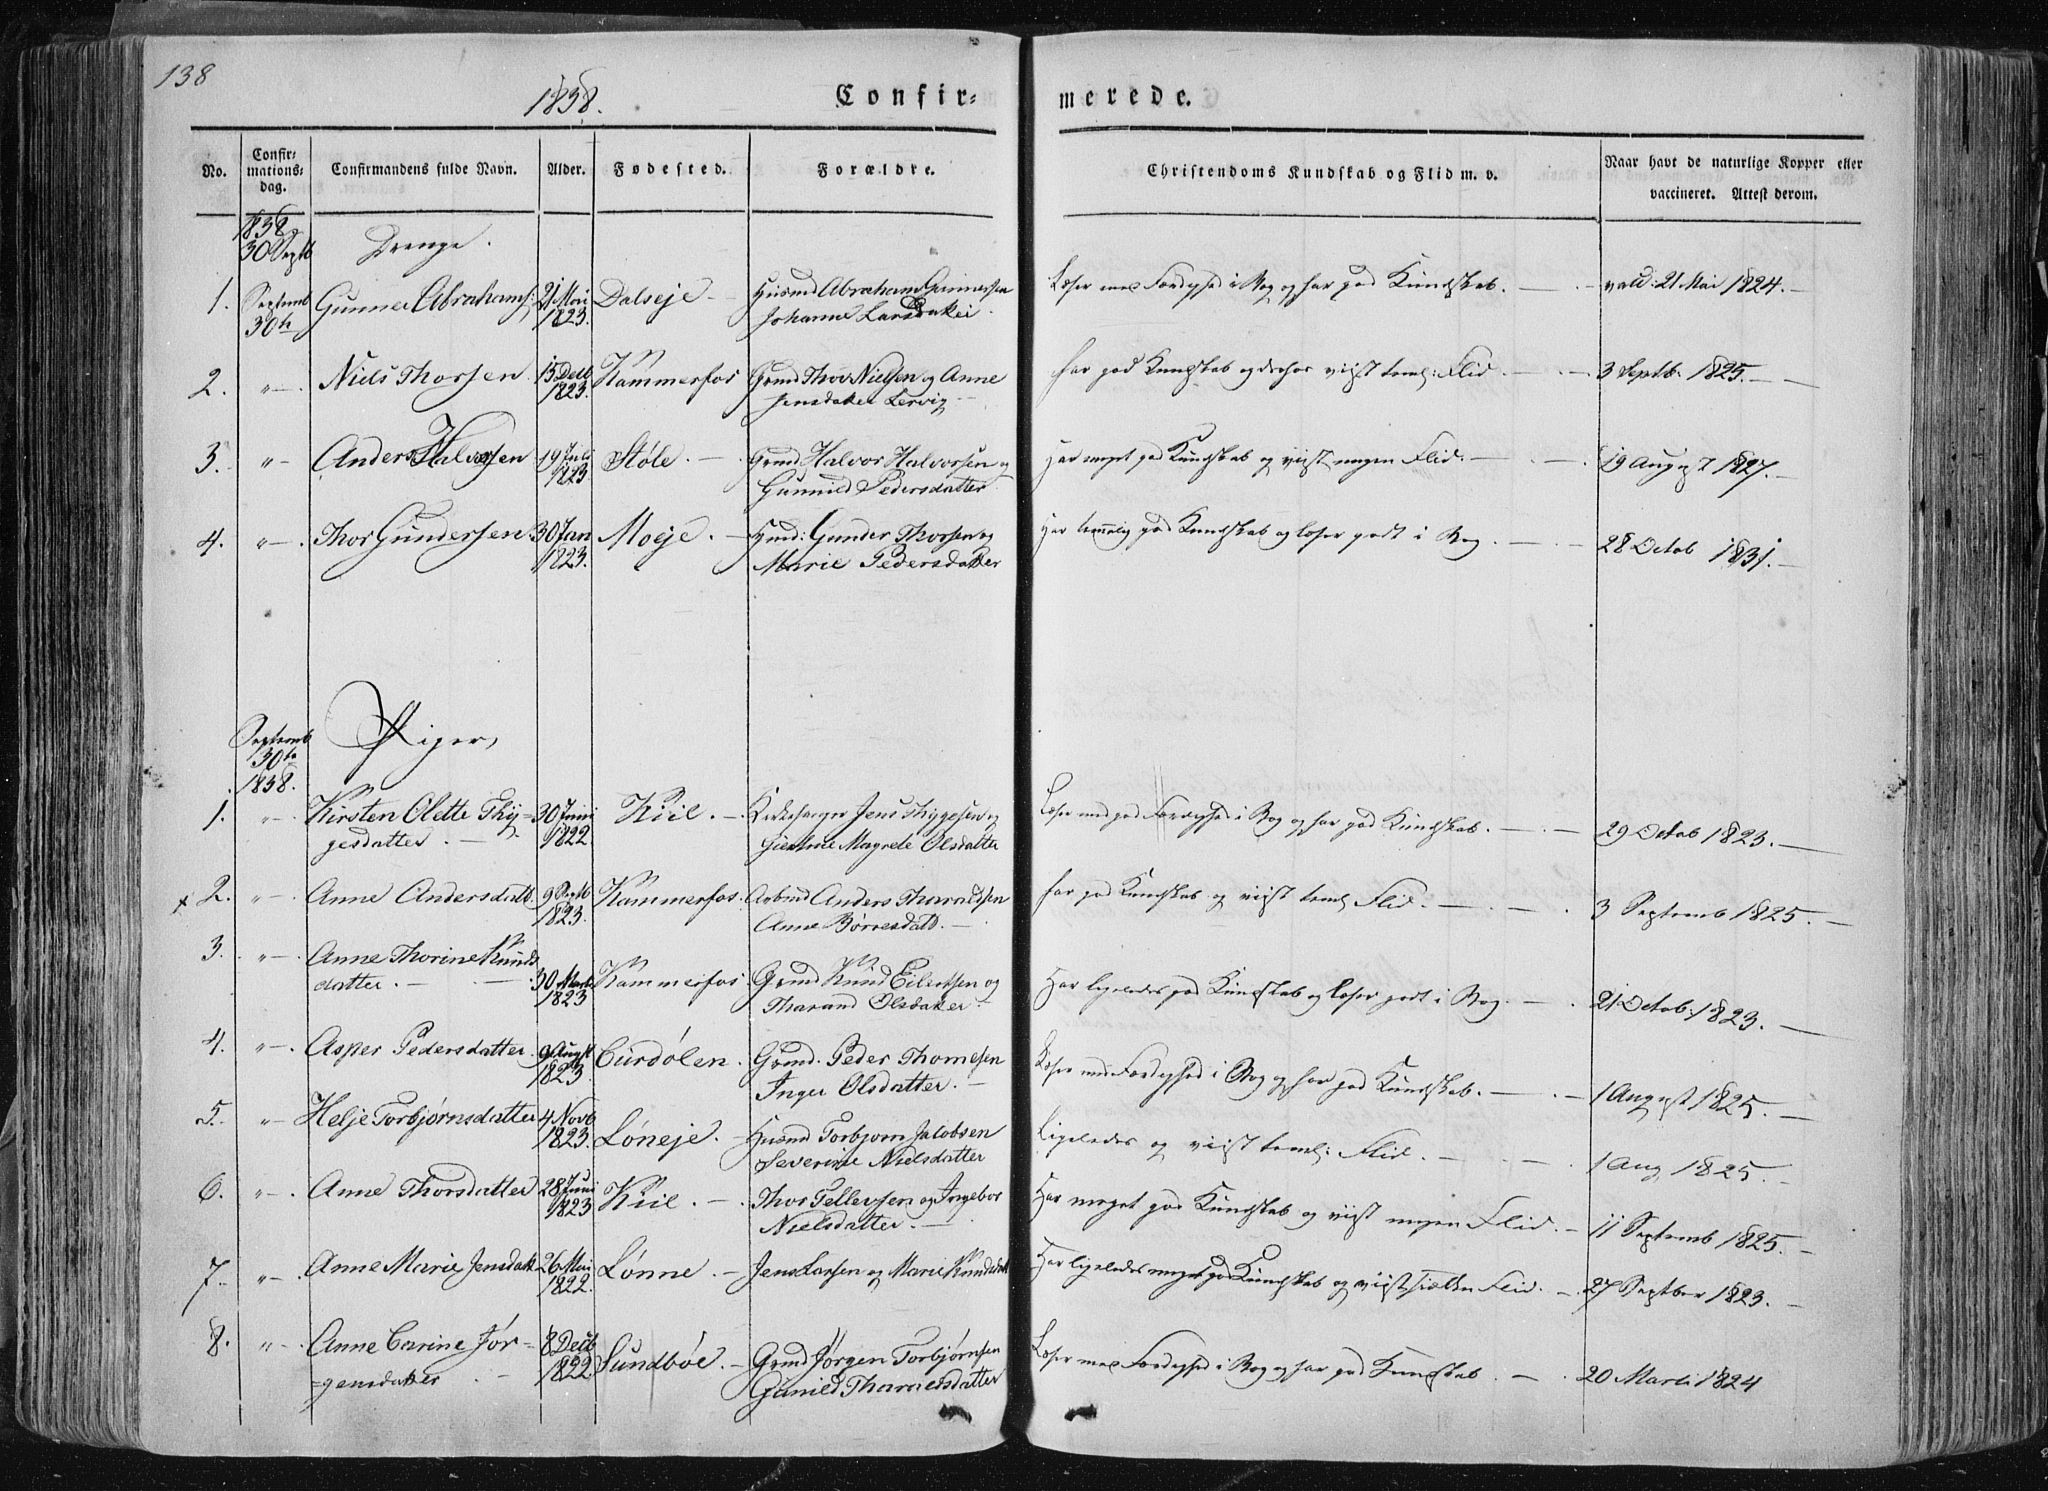 138
1838.
Confir=
merede.
No.
Confir=
mations=
dag.
Confirmandens fulde Navn.
Alder.
Fødested.
Forældre.
Christendoms Kundskab og Flid m. v.
Naar havt de naturlige Kopper eller
vaccineret. Attest derom.
1838
30 Septb Drenge.
1. Septemb Gunner Abrahams: 21 Mai Dalseje Husmd Abraham Gunnersen Læser med Færdighed i Bog og har god Kundskab. 21 Mai 1824.
30te 1823. Johanne Larsdatter
2. " Niels Thorsen 15 Decb Kammerfos Grmd Thor Nielsen og Anne har god Kundskab og viist teml: Flid. 3 Septb. 1825.
1823. Jensdatter Lervig
3. " Anders Halvorsen 19 Juli Støle. Grmd Halvor Halvorsen og Har meget god Kundskab og viist megen Flid. 19 August 1827.
1823. Gunnild Pedersdatter
4. " Thor Gundersen 30 Jan Moeje. Husmd: Gunder Thorsen og Har temmelig god Kundskab og læser godt i Bog. 28 Octob 1831.
1823. Marie Pedersdatter
Septemb Piger,
30te
1838.
1. " Kirsten Olette Thy= 30 Juni Kiil. Kirkesanger Jens Thygesen og Læser med god Færdighed i Bog og har god Kundskab. 29 Octob 1823.
gesdatter. 1822. Magrete Olsdatter
x 2. " Anne Andersdatt. 9 Septb Kammerfos. Arbmd Anders Tharaldsen har god Kundskab og viist teml. Flid. 3 Septemb 1825.
1823. Anne Børresdatt.
3. " Anne Thorine Knuds
datter. 30 Marti Kammerfos Grmd Knud Eilertsen og Har ligeledes god Kundskab og læser godt i Bog. 21 Octob: 1823.
1823 Tharand Olsdatter
4. " Asper Pedersdatter. 9 Augst Curdølen. Grmd. Peder Thomesen Læser med Færdighed i Bog og har god Kundskab. 1 August 1825.
1823. Inger Olsdatter.
5. " Helje Torbjørnsdatter 4 Novb Løneje. Husmd Torbjørn Jacobsen Ligeledes og viist teml: Flid. 1 Aug 1825.
1823. Severine Nielsdatter
6. " Anne Thorsdatter 28 Juni Kiil Thor Tellevsen og Ingebor Har meget god Kundskab og viist megen Flid. 11 Septemb 1825.
1823 Nielsdatter.
7. " Anne Marie Jensdatt 26 Mai Lønne Jens Larsen og Marie Knudsdatt Har ligeledes meget god Kundskab og viist Flid. 27 September 1823.
1822.
8. " Anne Carine Jør= 8 Decb Sundbøe. Grmd Jørgen Torbjørnsen Læser med Færdighed i Bog og har god Kundskab. 20 Marti 1824
=gensdatter 1822 Gunild Tharaldsdatter